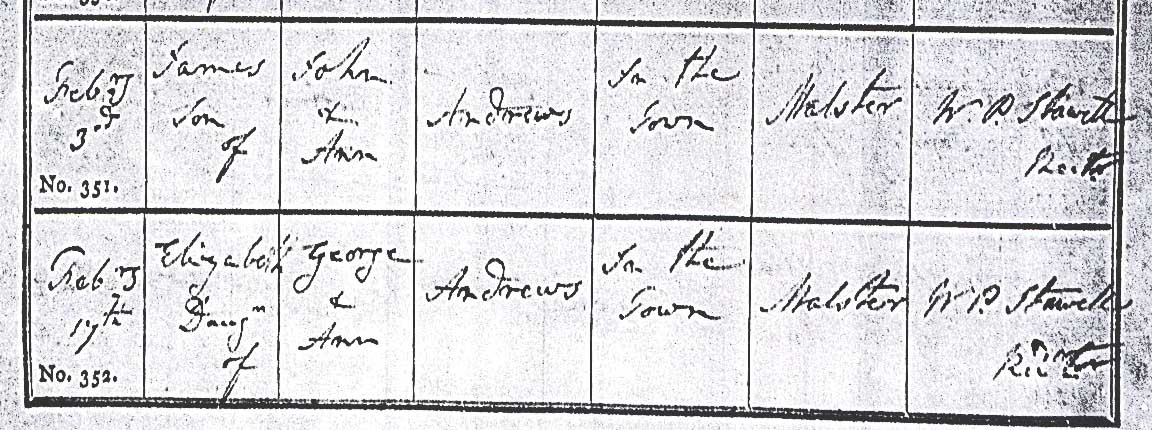 Febry
3rd
No. 351.
James
Son
of
John
&
Ann
Andrews
In the
Town
Malster
W. P. Stawell
Rector
Febry
17th
No. 352.
Elizabeth
Daugr
of
George
&
Ann
Andrews
In the
Town
Malster
W. P. Stawell
Rector